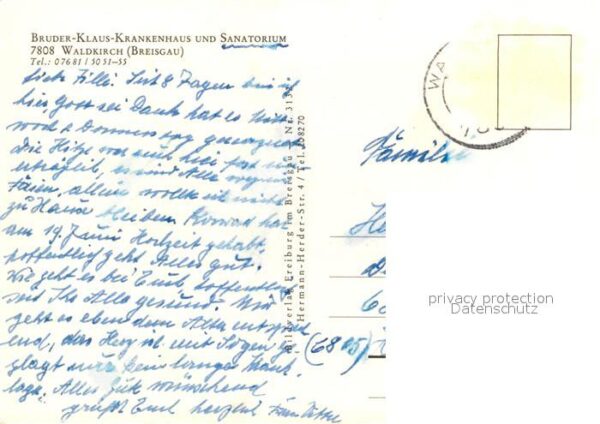 BRUDER-KLAUS-KRANKENHAUS UND SANATORIUM
7808 WALDKIRCH (BREISGAU)
Tel.: 07681/5051–55
Liebe Filli! Seit 8 Tagen bin ich
hier, Gott sei Dank hat es
Donnerstag
Die Hitze war
erträglich, es sind Alle
Ferien, allein wollte ich nicht
zu Hause bleiben. Konrad hat
am 19. Juni Hochzeit gehabt,
hoffentlich geht Alles gut.
Wie geht es bei Euch, hoffentlich
seit Ihr Alle gesund. Mir
geht es eben dem Alter entsprech
end, das Herz ist mit Sorgen ge
plagt nur kein langes Krank
lager. Alles Gute wünschend
grüßt Euch herzlich Frau
Bildverlag Freiburg im Breisgau
Hermann-Herder-Str. 4 / Tel. 208270
WA
Familie
(6805)
privacy protection
Datenschutz